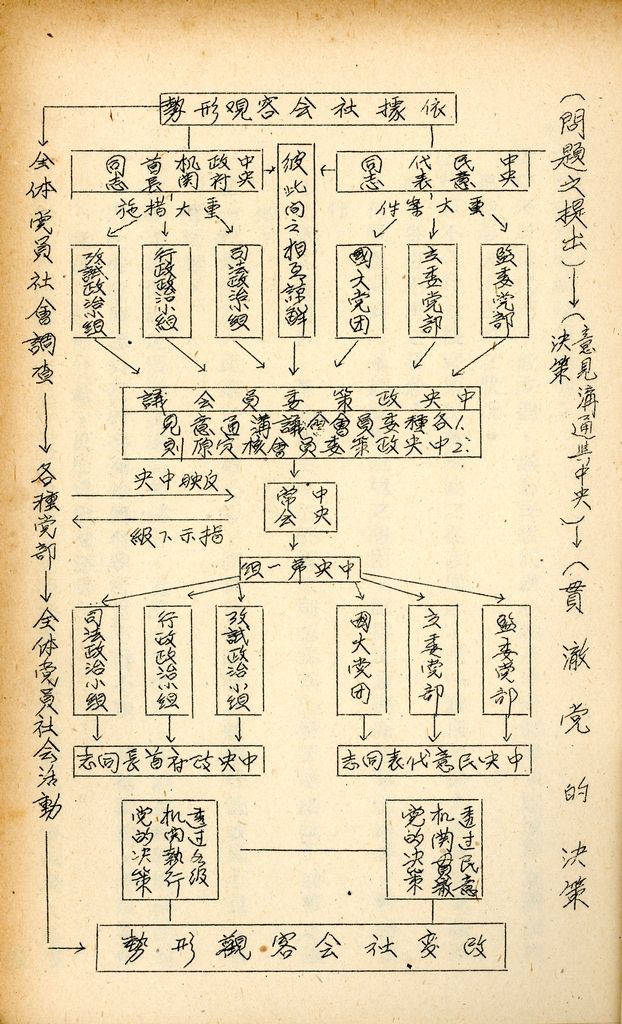 (問題之提出)→(意見溝通與中央决策)→(貫澈党的决策)
依據社会客观形勢
中央民意代表同志
彼此间之相互諒解
中央政府机関首長同志
重大案件
重大措施
監委党部
立委党部
國大党团
司法政治小組
行政政治小組
攷試政治小組
中央政策委員会議
1.各種委員會會議溝通意見
2.中央政策委員會核定原則
中央常会
反映中央
指示下級
中央第一組
監委党部
立委党部
國大党团
攷試政治小組
行政政治小組
司法政治小組
中央民意代表同志
中央政府首長同志
透过民意机関貫澈党的决策
透过各級机関執行党的决策
改变社会客觀形勢
全体党员社會調查→各種党部→全体党员社会活動